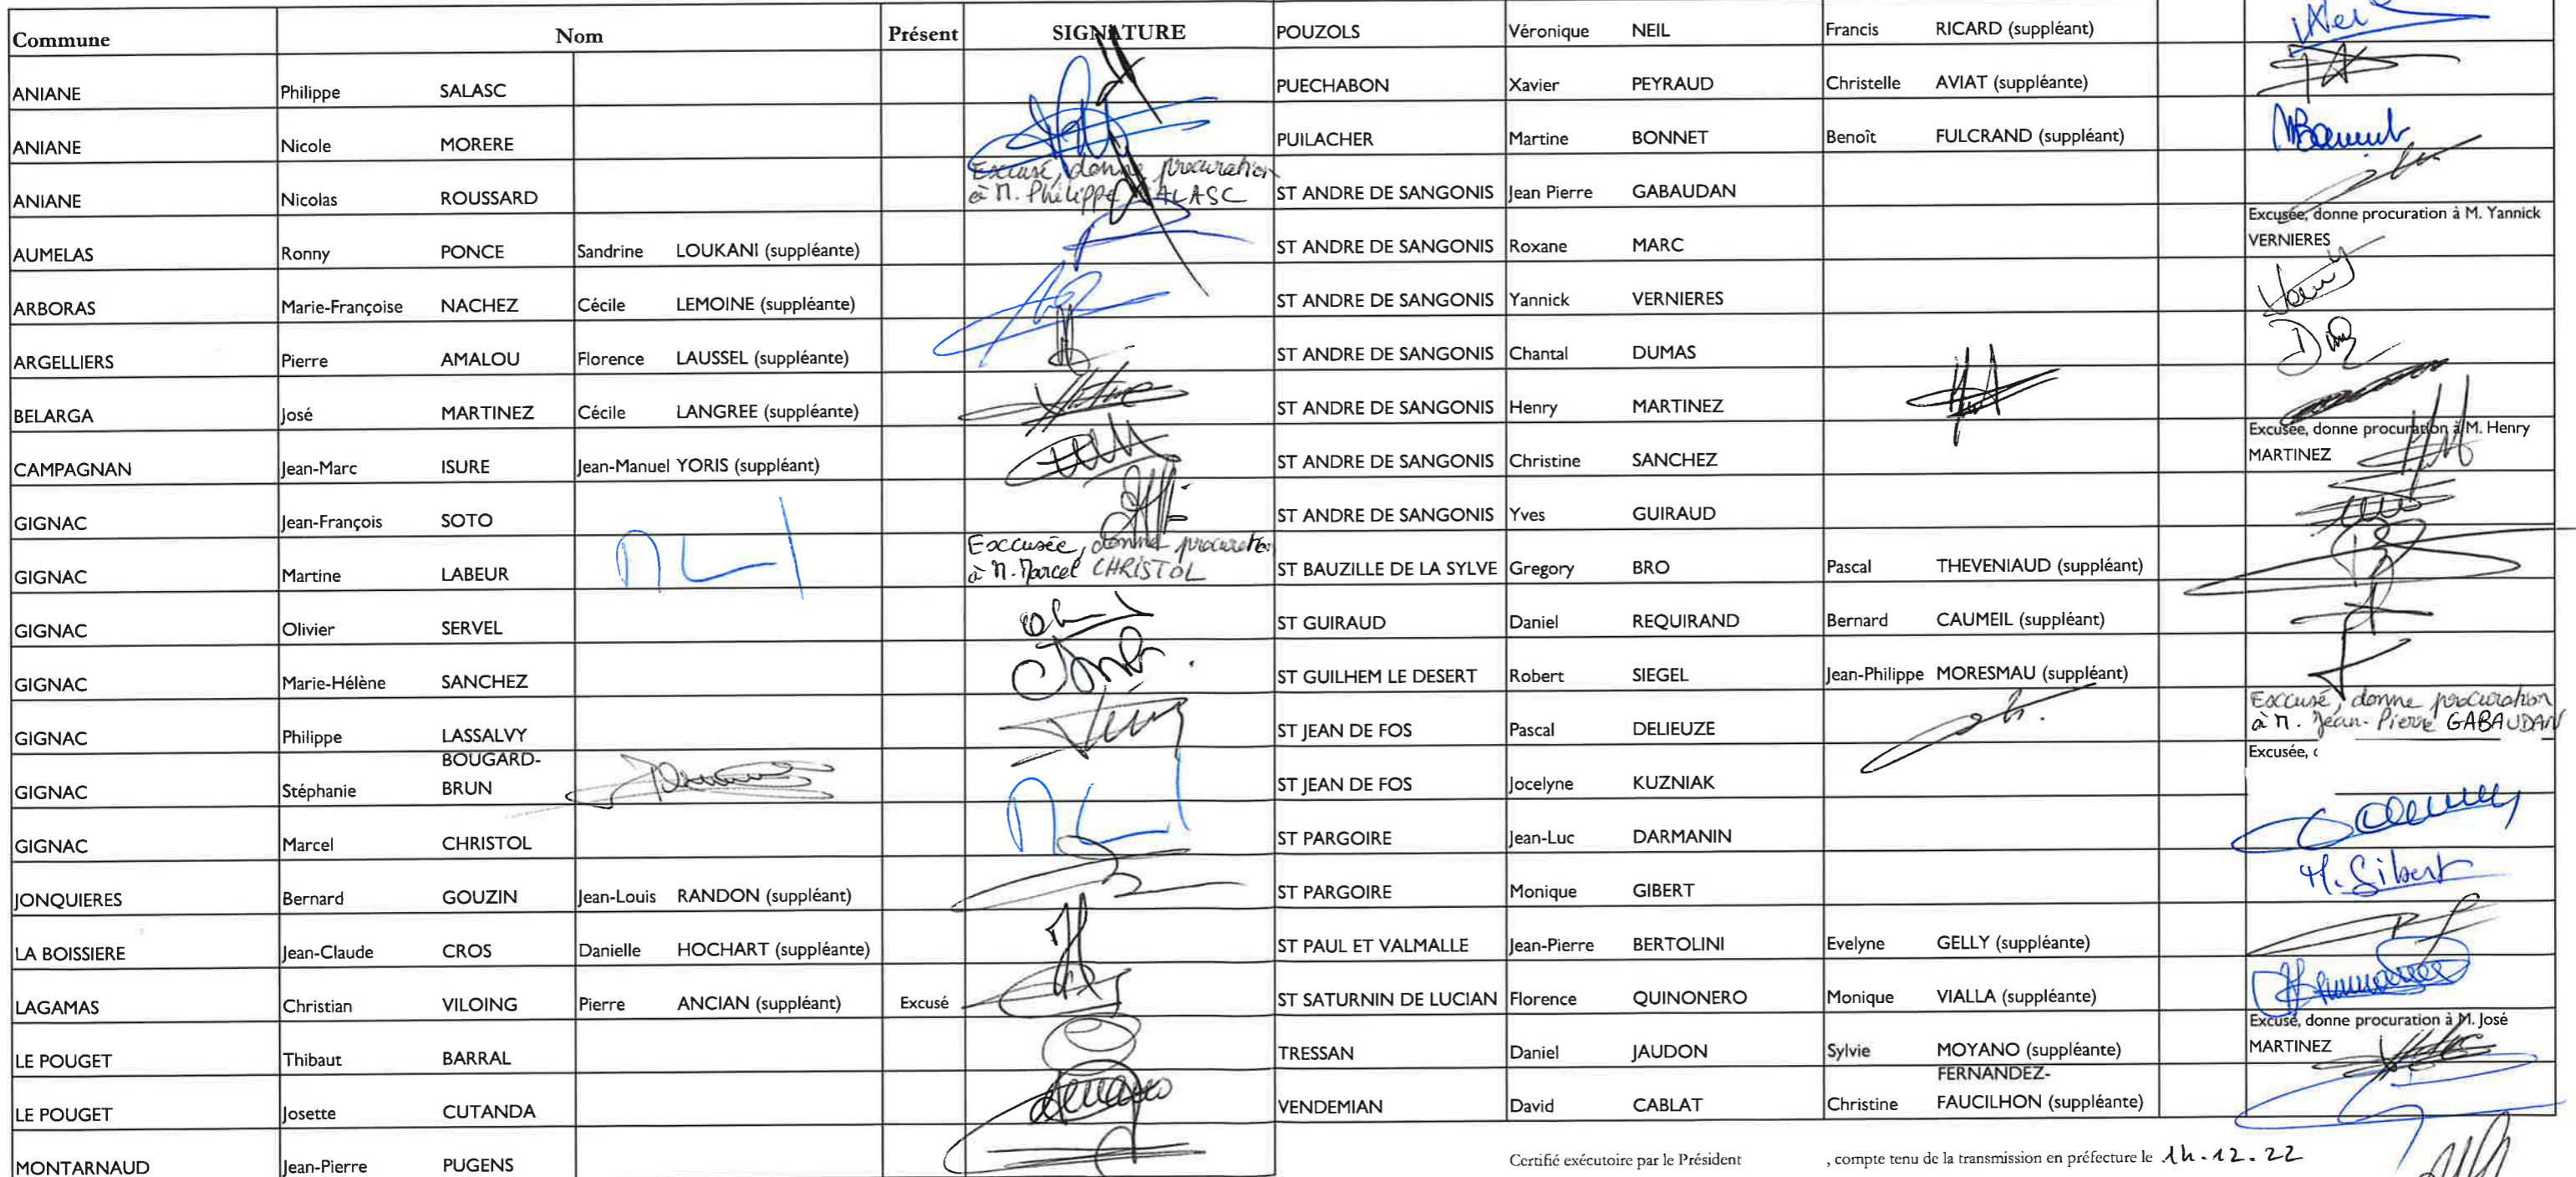 Commune Nom Présent SIGNATURE
ANIANE Philippe SALASC
ANIANE Nicole MORERE
ANIANE Nicolas ROUSSARD Excusé, donne procuration
à M. Philippe SALASC
AUMELAS Ronny PONCE Sandrine LOUKANI (suppléante)
ARBORAS Marie-Françoise NACHEZ Cécile LEMOINE (suppléante)
ARGELLIERS Pierre AMALOU Florence LAUSSEL (suppléante)
BELARGA José MARTINEZ Cécile LANGREE (suppléante)
CAMPAGNAN Jean-Marc ISURE Jean-Manuel YORIS (suppléant)
GIGNAC Jean-François SOTO
GIGNAC Martine LABEUR Excusée, donne procuration
à M. Marcel CHRISTOL
GIGNAC Olivier SERVEL
GIGNAC Marie-Hélène SANCHEZ
GIGNAC Philippe LASSALVY
GIGNAC Stéphanie BOUGARD-
BRUN
GIGNAC Marcel CHRISTOL
JONQUIERES Bernard GOUZIN Jean-Louis RANDON (suppléant)
LA BOISSIERE Jean-Claude CROS Danielle HOCHART (suppléante)
LAGAMAS Christian VILOING Pierre ANCIAN (suppléant) Excusé
LE POUGET Thibaut BARRAL
LE POUGET Josette CUTANDA
MONTARNAUD Jean-Pierre PUGENS
POUZOLS Véronique NEIL Francis RICARD (suppléant)
PUECHABON Xavier PEYRAUD Christelle AVIAT (suppléante)
PUILACHER Martine BONNET Benoît FULCRAND (suppléant)
ST ANDRE DE SANGONIS Jean Pierre GABAUDAN
ST ANDRE DE SANGONIS Roxane MARC Excusée, donne procuration à M. Yannick
VERNIERES
ST ANDRE DE SANGONIS Yannick VERNIERES
ST ANDRE DE SANGONIS Chantal DUMAS
ST ANDRE DE SANGONIS Henry MARTINEZ
ST ANDRE DE SANGONIS Christine SANCHEZ Excusée, donne procuration à M. Henry
MARTINEZ
ST ANDRE DE SANGONIS Yves GUIRAUD
ST BAUZILLE DE LA SYLVE Gregory BRO Pascal THEVENIAUD (suppléant)
ST GUIRAUD Daniel REQUIRAND Bernard CAUMEIL (suppléant)
ST GUILHEM LE DESERT Robert SIEGEL Jean-Philippe MORESMAU (suppléant)
ST JEAN DE FOS Pascal DELIEUZE Excusé, donne procuration
à M. Jean-Pierre GABAUDAN
ST JEAN DE FOS Jocelyne KUZNIAK Excusée,
ST PARGOIRE Jean-Luc DARMANIN
ST PARGOIRE Monique GIBERT M. Gibert
ST PAUL ET VALMALLE Jean-Pierre BERTOLINI Evelyne GELLY (suppléante)
ST SATURNIN DE LUCIAN Florence QUINONERO Monique VIALLA (suppléante)
TRESSAN Daniel JAUDON Sylvie MOYANO (suppléante) Excusé, donne procuration à M. José
MARTINEZ
VENDEMIAN David CABLAT Christine FERNANDEZ-
FAUCILHON (suppléante)
Certifié exécutoire par le Président , compte tenu de la transmission en préfecture le 14.12.22